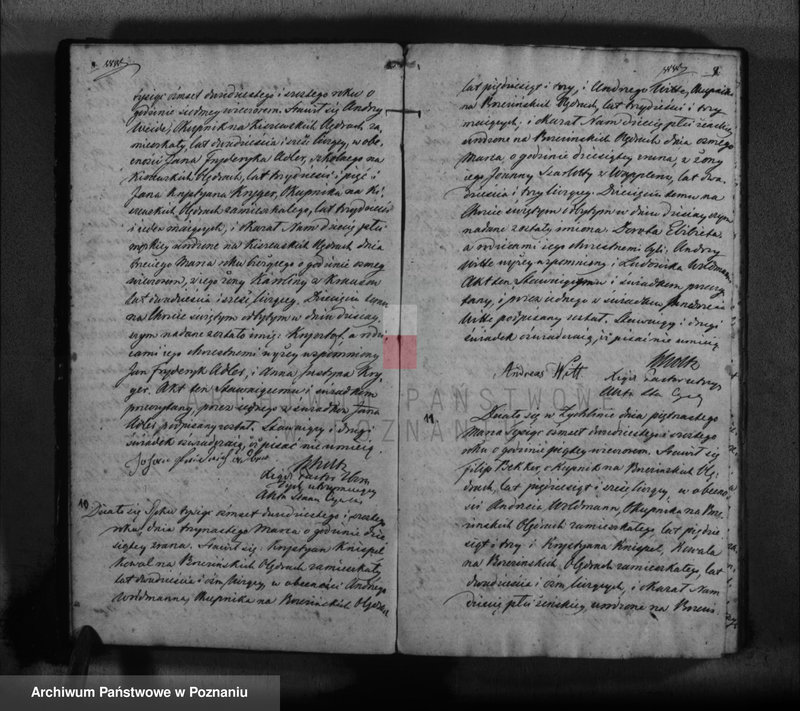 tysiąc ośmset dwudziestego i szóstego roku o
godzinie siódmey wieczorem. Stawił się Andrzy
Weide, Okupnik na Kiszewskich Olędrach za,
mieszkały, lat dwadzieścia i sześć liczący, w obe,
cności Jana Fryderyka Adler, szkolnego na
Kiszewskich Olędrach, lat trzydzieści i pięć i
Jana Krystyana Kryger, Okupnika na Ki,
szewskich Olędrach zamieszkałego, lat trzydzieści
i siedem maiących, i okazał Nam dziecię płci
męskiey urodzone na Kiszewskich Olędrach dnia
trzeciego Marca roku bieżącego o godzinie osmey
wieczorem, z iego żony Karoliny z
lat dwadzieścia i sześć liczącey. Dziecięciu temu
na Chrzcie świętym odbytym w dniu dzisiey,
szym nadane zostało imię: Krysztof, a rodzi,
cami iego chrzestnemi wyżey wspomniony
Jan Fryderyk Adler, i Anna Justyna Kry,
ger. Akt ten Stawaiącemu i świadkom
przeczytany, przez iednego z świadków Jana
Adler podpisany został. Stawaiący i drugi
świadek oświadczaią, iż pisać nie umieią.
Johann Friedrich Adler
Akta Stanu Cywil
10 Działo się Roku tysiąc ośmset dwudziestego i szóstego
roku, dnia trzynastego Marca o godzinie dzie
siątey zrana. Stawił się Krystyan Knispel
Kowal na Olędrach zamieszkały
lat dwadzieścia i ośm liczący, w obecności Andrzeia
Woldmanna, Okupnika na Olędrach
lat pięćdziesiąt i trzy, i Andrzeia Witta, Okupnika
na Olędrach, lat trzydzieści i trzy
maiących, i okazał Nam dziecię płci żeńskiey
urodzone na Olędrach dnia osmego
Marca o godzinie dziesiątey zrana, z żony
iego Joanny Szarlotty z lat dwa,
dzieścia i trzy liczącey. Dziecięciu temu na
Chrzcie świętym odbytym w dniu dzisieyszym
nadane zostały imiona: Dorota Elżbieta
a rodzicami iego chrzestnemi byli: Andrzy
Witte wyżey wspomniony i Ludwika Woldmann
Akt ten Stawaiącym i świadkom przeczy
tany, i przez iednego z świadków Andrzeia
Witte podpisany został. Stawaiący i drugi
świadek oświadczaią, iż pisać nie umieią
Andreas Witt
Akta Stanu Cywil
11 Działo się w Lychlinie dnia piętnastego
Marca tysiąc ośmset dwudziestego i szóstego
roku o godzinie piątey wieczorem. Stawił się
Filip Bekker, Okupnik na Olę,
drach, lat pięćdziesiąt i sześć liczący, w obecno
ści Andrzeia Woldmann, Okupnika na
Olędrach zamieszkałego, lat pięćdzie
siąt i trzy i Krystyana Knispel, Kowala
na Olędrach zamieszkałego, lat
dwadzieścia i ośm liczących, i okazał Nam
dziecię płci żeńskiey, urodzone na
ARCHIWUM PAŃSTWOWE
W POZNANIU
Archiwum Państwowe w Poznaniu